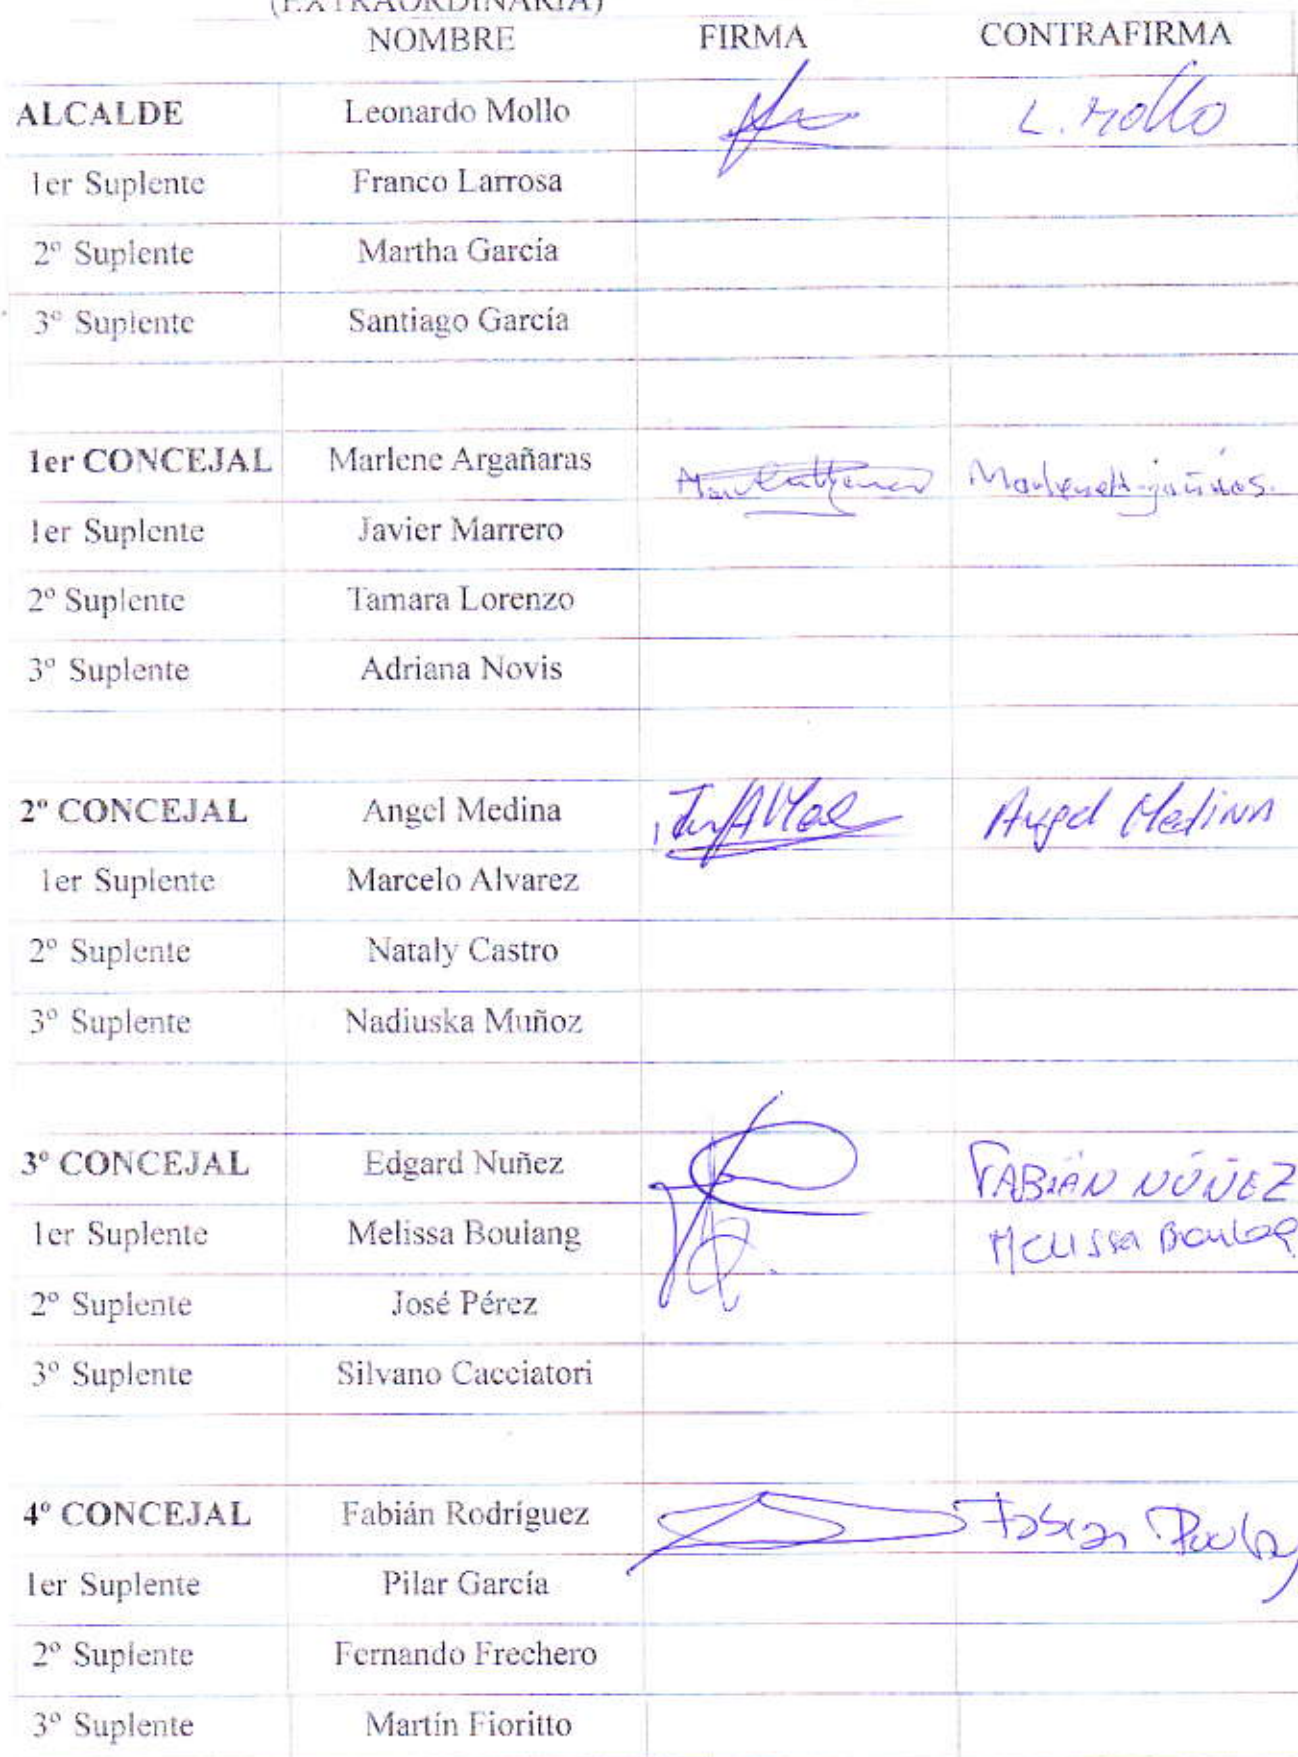 (EXTRAORDINARIA)
NOMBRE FIRMA CONTRAFIRMA
ALCALDE Leonardo Mollo L. Mollo
1er Suplente Franco Larrosa
2º Suplente Martha García
3º Suplente Santiago García
1er CONCEJAL Marlene Argañaras
1er Suplente Javier Marrero
2º Suplente Tamara Lorenzo
3º Suplente Adriana Novis
2º CONCEJAL Angel Medina Angel Medina
1er Suplente Marcelo Alvarez
2º Suplente Nataly Castro
3º Suplente Nadiuska Muñoz
3º CONCEJAL Edgard Nuñez FABIÁN NÚÑEZ
1er Suplente Melissa Boulang Melissa
2º Suplente José Pérez
3º Suplente Silvano Cacciatori
4º CONCEJAL Fabián Rodríguez Fabian
1er Suplente Pilar García
2º Suplente Fernando Frechero
3º Suplente Martín Fioritto